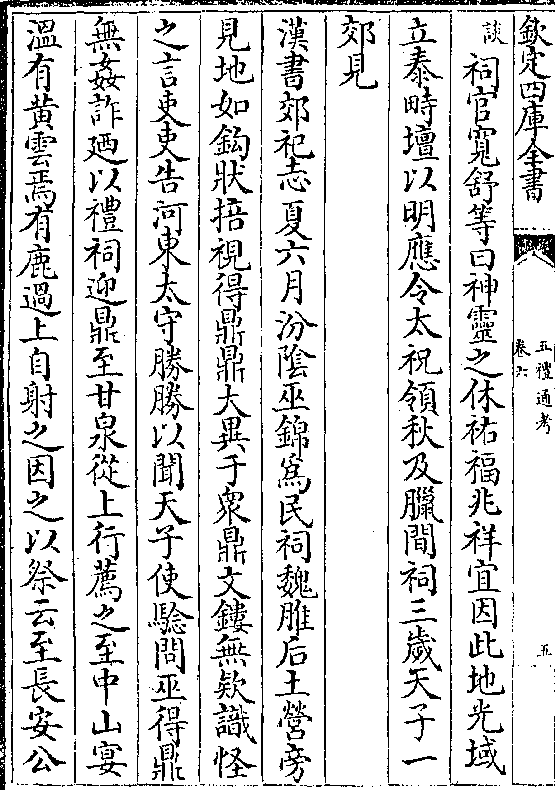 欽定四庫全書
五禮通考
卷六
五
談祠官寬舒等曰神靈之休祐福兆祥宜因此地光域
立泰畤壇以明應令太祝領秋及臘間祠三歲天子一
郊見
漢書郊祀志夏六月汾陰巫錦為民祠魏脽后土營旁
見地如鈎狀掊視得鼎鼎大異于衆鼎文鏤無欵識怪
之言吏吏告河東太守勝勝以聞天子使驗問巫得鼎
無姦詐廼以禮祠迎鼎至甘泉從上行薦之至中山宴
温有黄雲焉有鹿過上自射之因之以祭云至長安公